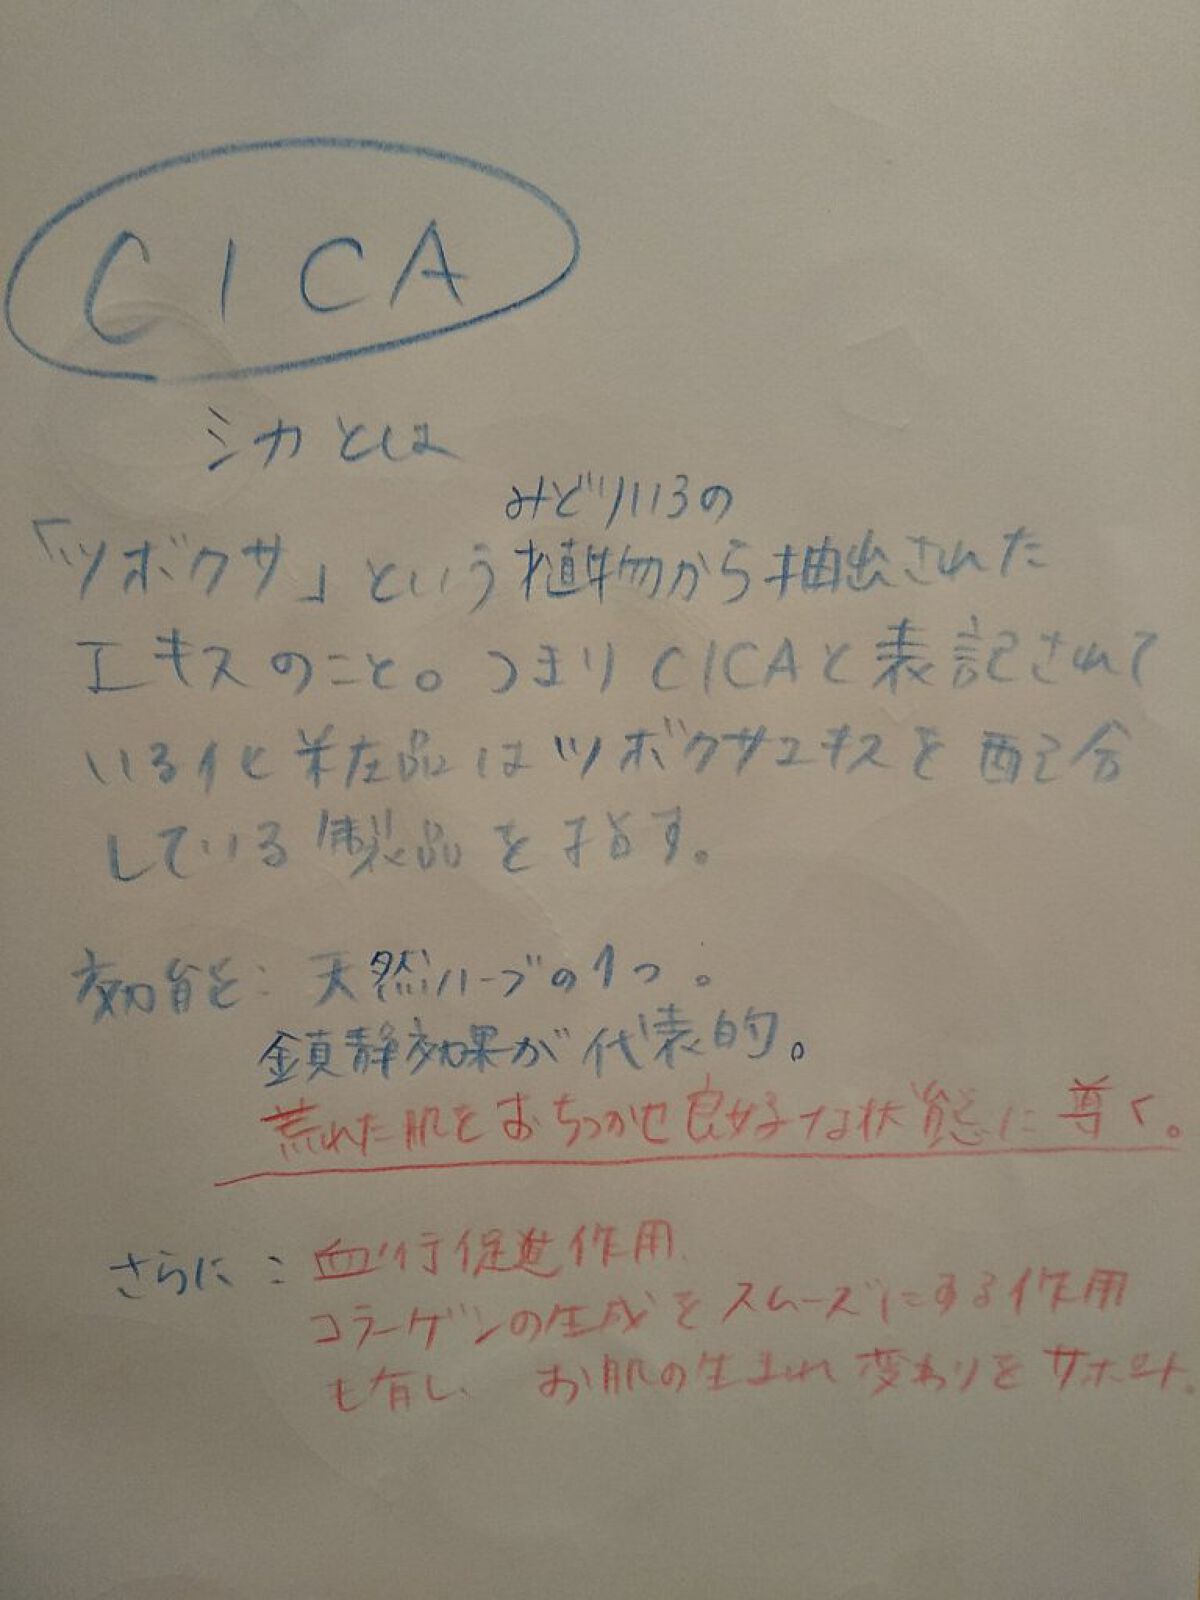 CICA
シカとは
みどりいろの
「ツボクサ」という植物から抽出された
エキスのこと。つまりCICAと表記されて
いる化粧品はツボクサエキスを配合
している製品を指す。
効能:天然ハーブの1つ。
鎮静効果が代表的。
荒れた肌をおちつかせ良好な状態に導く。
さらに:血行促進作用、
コラーゲンの生成をスムーズにする作用
も有し、お肌の生まれ変わりをサポート。